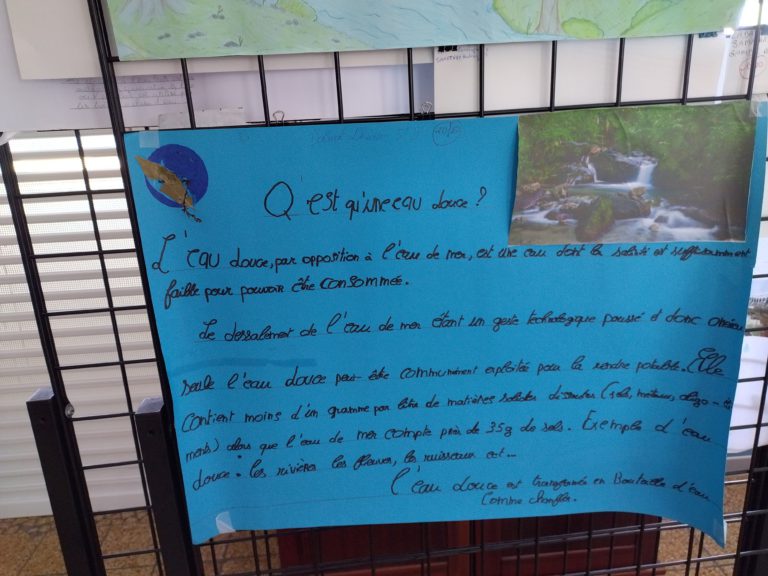 Q'est qu'une eau douce ?
L'eau douce, par opposition à l'eau de mer, est une eau dont la salinité est suffisamment
faible pour pouvoir être consommée.
Le dessalement de l'eau de mer étant un geste technologique poussé et donc onéreux
seule l'eau douce peut être communément exploitée pour la rendre potable. Elle
contient moins d'un gramme par litre de matières solides dissoutes (sels, métaux, oligo-élé
ments) alors que l'eau de mer compte près de 35g de sels. Exemple d'eau
douce : les rivières les fleuves, les ruisseaux ect...
L'eau douce est transformée en Bouteille d'eau
Comme